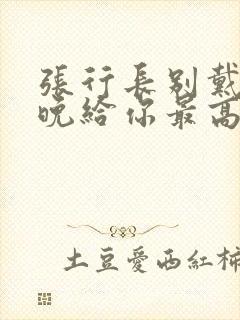 張行長別戴
晚給你最高
土豆愛西紅柿